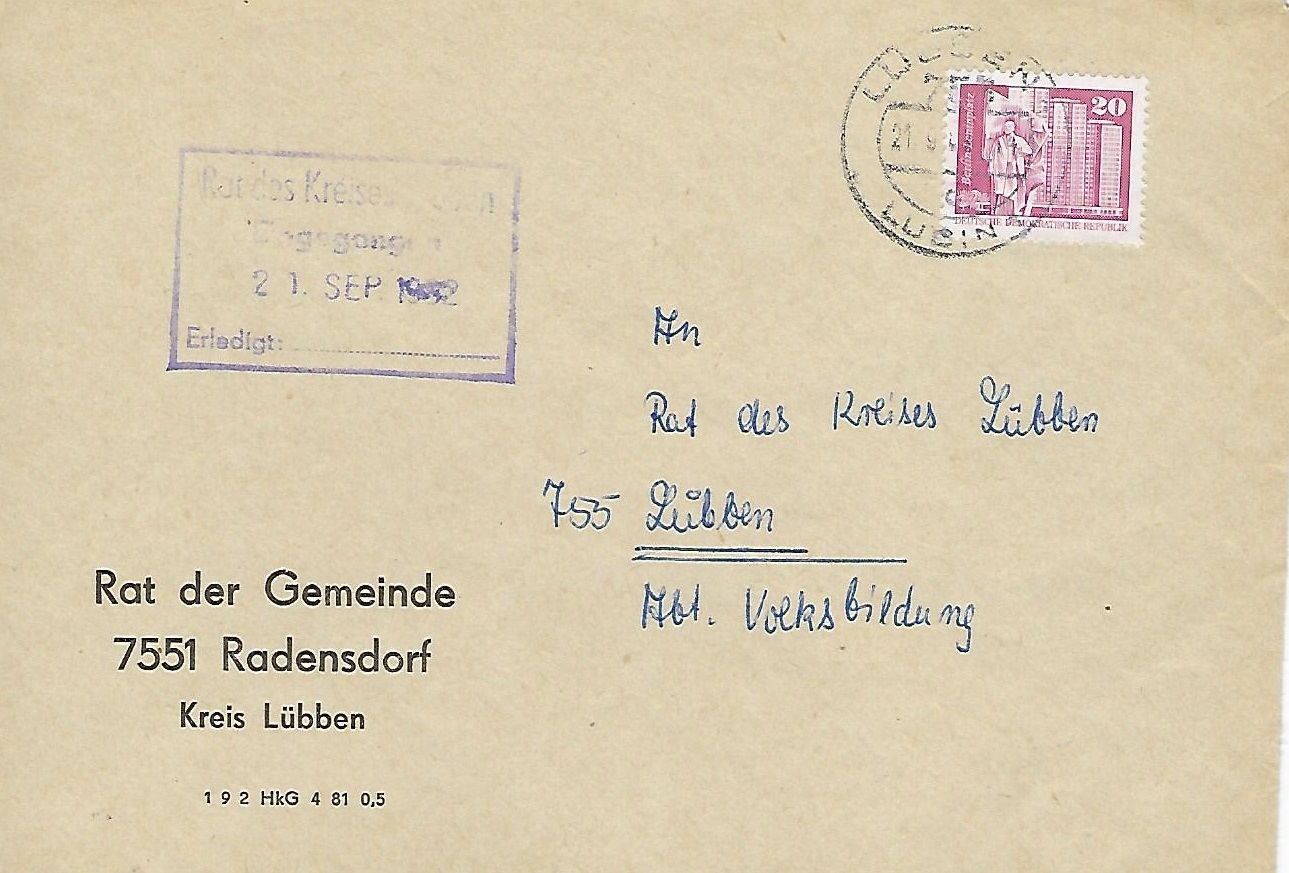 LÜBBEN
21.9.
LUBIN
20
Berlin-Leninplatz
DEUTSCHE DEMOKRATISCHE REPUBLIK
Rat des Kreises
Eingegangen
21. SEP.
Erledigt:
An
Rat des Kreises Lübben
755 Lübben
Abt. Volksbildung
Rat der Gemeinde
7551 Radensdorf
Kreis Lübben
1 9 2 HkG 4 81 0,5